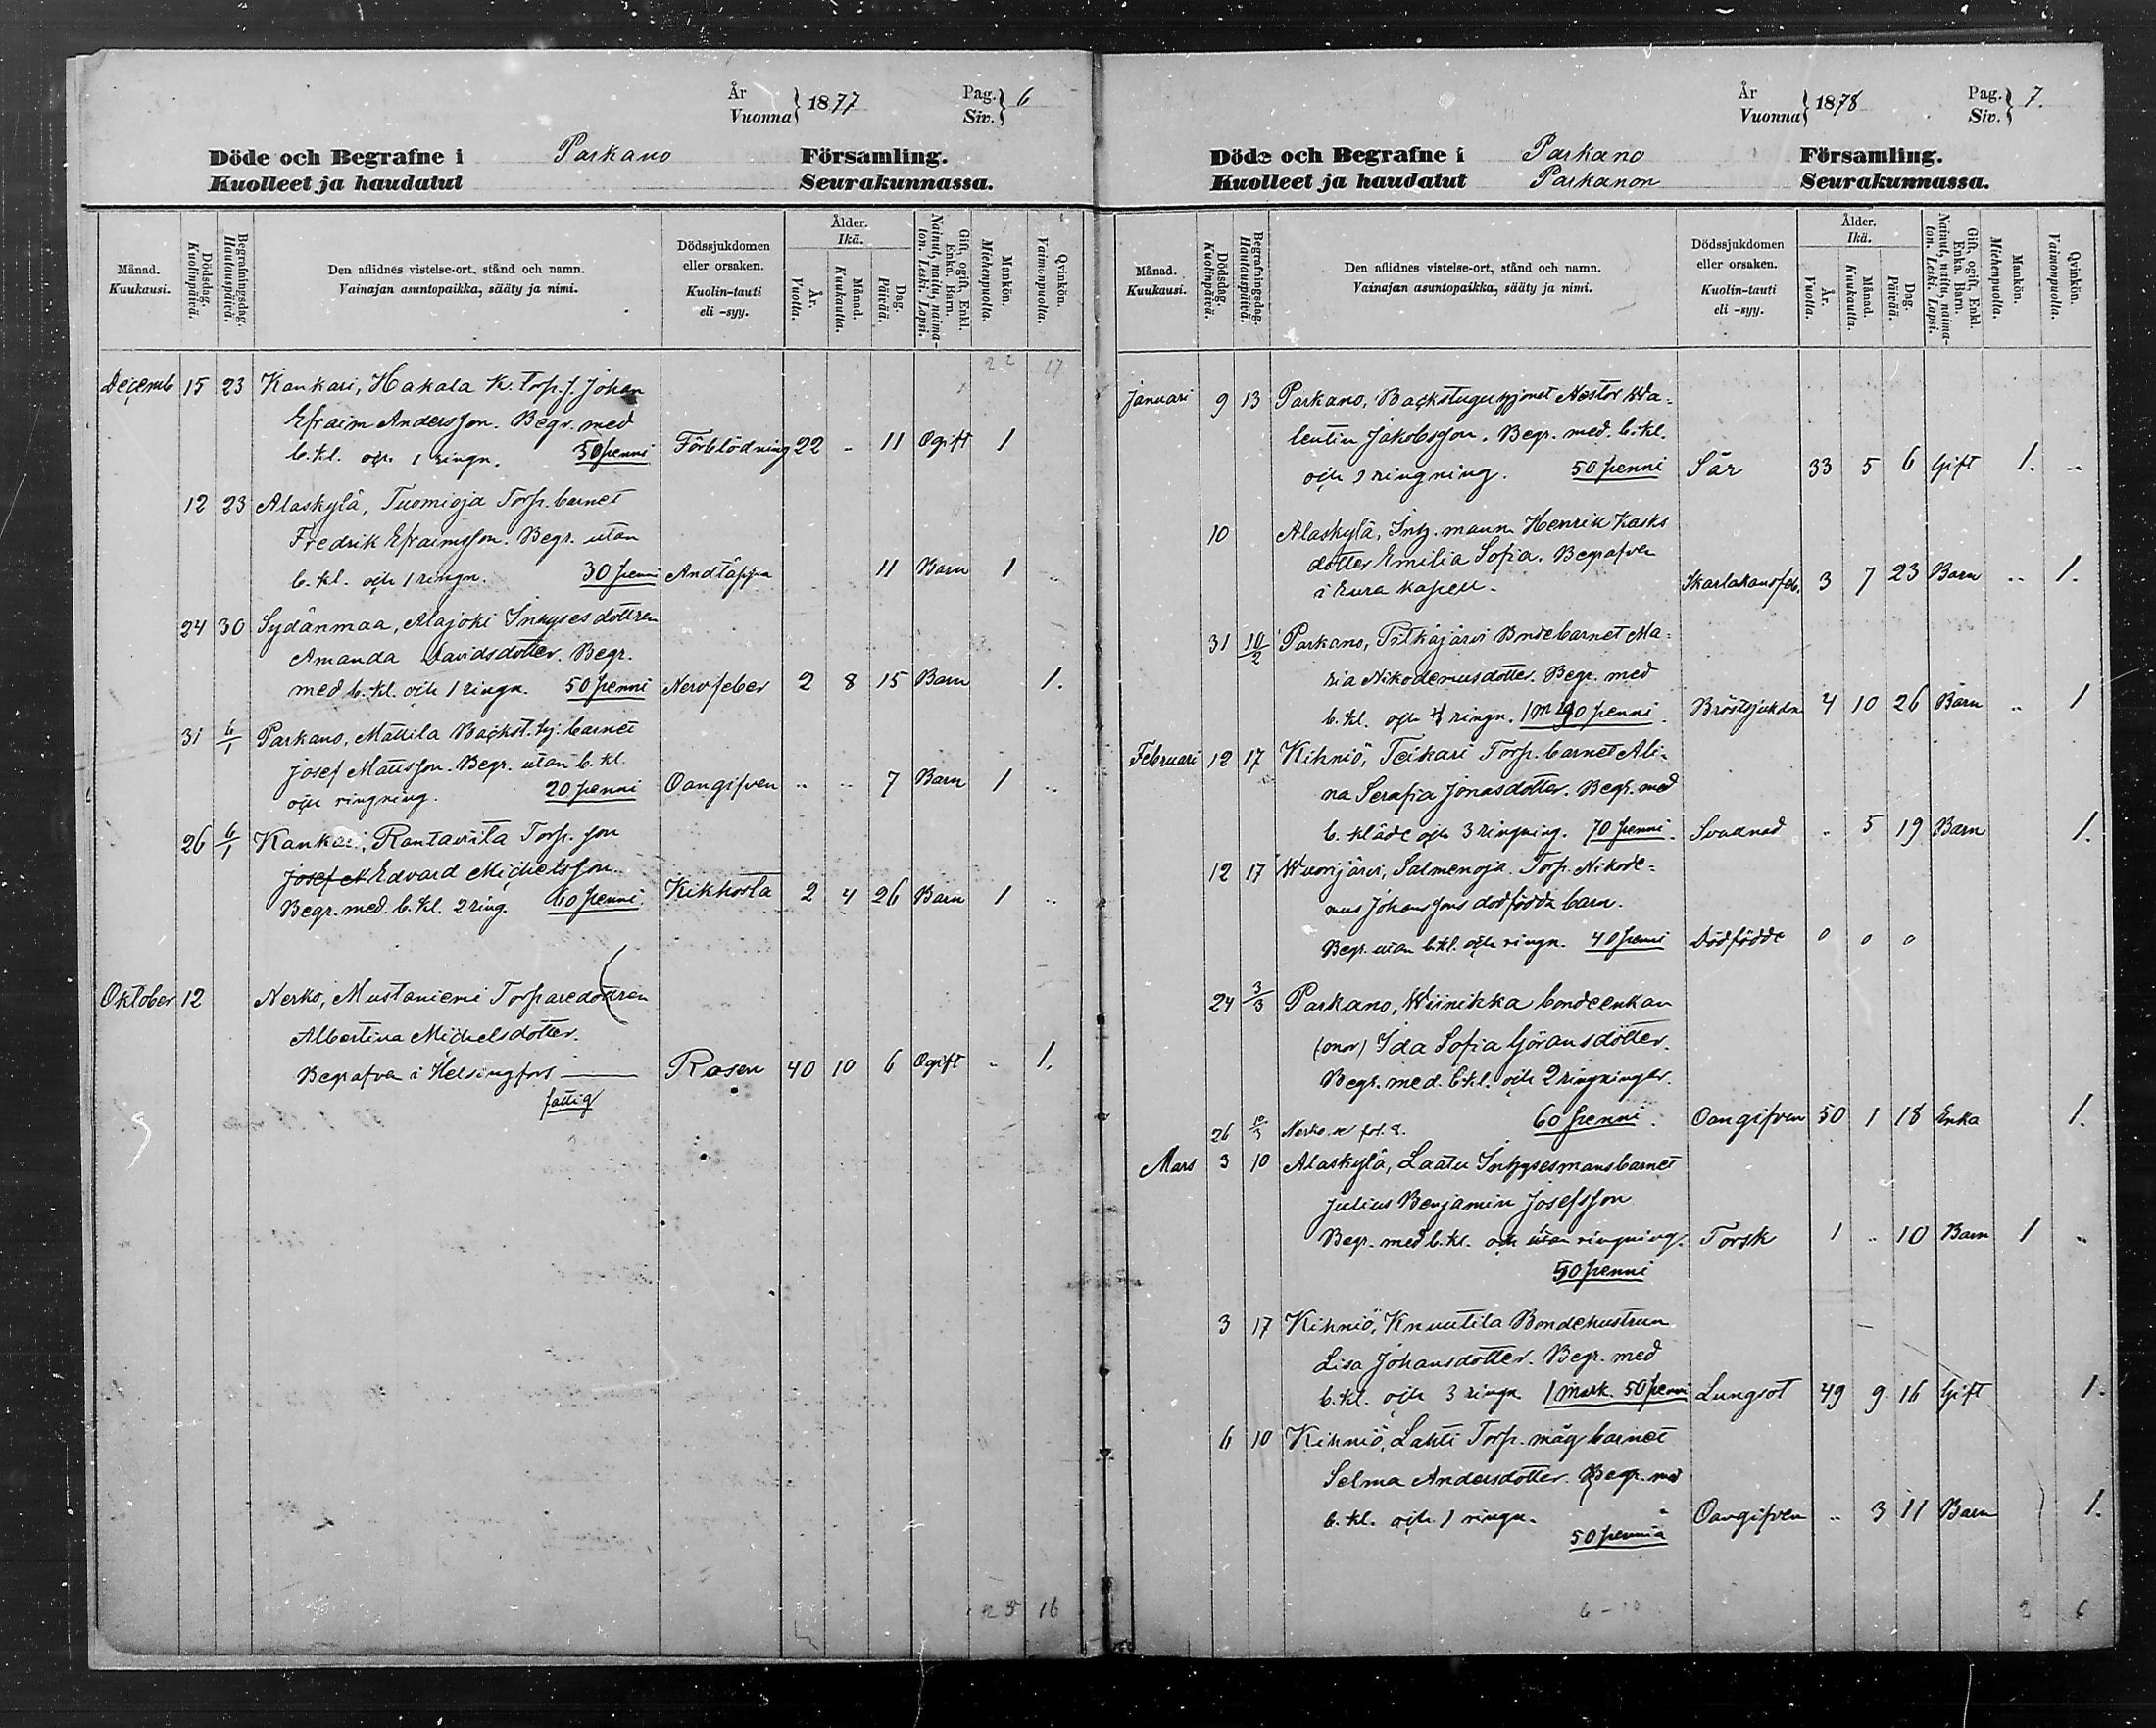 År
Vuonna } 1877
Pag.
Siv. } 6
Döde och Begrafne i Parkano Församling.
Kuolleet ja haudatut Seurakunnassa.
Månad.
Kuukausi.
Dödsdag.
Kuolinpäivä.
Begrafningsdag.
Hautauspäivä.
Den aflidnes vistelse-ort, stånd och namn.
Vainajan asuntopaikka, sääty ja nimi.
Dödssjukdomen
eller orsaken.
Kuolin-tauti
eli -syy.
Ålder.
Ikä.
År.
Vuotta.
Månad.
Kuukautta.
Dag.
Päivää.
Gift, ogift, Enkl.
Enka. Barn.
Nainut, naitu, naima-
ton. Leski. Lapsi.
Mankön.
Miehenpuolta.
Qvinkön.
Vaimonpuolta.
22 17
Decemb 15 23 Kankari, Hakala K. Torp. s. Johan
Efraim Andersson. Begr. med
b. kl. och 1 ringn. 50 penni Förblödning 22 - 11 Ogift 1
12 23 Alaskylä, Tuomioja Torp. barnet
Fredrik Efraimsson. Begr. utan
b. kl. och 1 ringn. 30 penni Andtäppa 11 Barn 1 ..
24 30 Sydänmaa, Alajoki Inhyses dottren
Amanda Davidsdotter. Begr.
med b. kl. och 1 ringn. 50 penni Nervfeber 2 8 15 Barn 1.
31 6/1 Parkano, Mattila Backst. hj. barnet
Josef Mattsson. Begr. utan b. kl.
och ringning. 20 penni Oangifven .. .. 7 Barn 1 ..
26 6/1 Kankari, Rantavirta Torp. son
Josef M Edvard Michelsson
Begr. med. b. kl. 2 ring. 60 penni. Kikhosta 2 4 26 Barn 1 ..
Oktober 12 Nerko, Mustaniemi Torparedottren
Albertina Michelsdotter.
Begrafven i Helsingfors Rosen 40 10 6 Ogift .. 1.
fattig
25 16
År
Vuonna } 1878
Pag.
Siv. } 7.
Döde och Begrafne i Parkano Församling.
Kuolleet ja haudatut Parkanon Seurakunnassa.
Månad.
Kuukausi.
Dödsdag.
Kuolinpäivä.
Begrafningsdag.
Hautauspäivä.
Den aflidnes vistelse-ort, stånd och namn.
Vainajan asuntopaikka, sääty ja nimi.
Dödssjukdomen
eller orsaken.
Kuolin-tauti
eli -syy.
Ålder.
Ikä.
År.
Vuotta.
Månad.
Kuukautta.
Dag.
Päivää.
Gift, ogift, Enkl.
Enka. Barn.
Nainut, naitu, naima-
ton. Leski. Lapsi.
Mankön.
Miehenpuolta.
Qvinkön.
Vaimonpuolta.
Januari 9 13 Parkano, Backstuguhjonet Nestor Wa-
lentin Jakobsson. Begr. med. b. kl.
och 1 ringning. 50 penni Sår 33 5 6 Gift 1. ..
10 Alaskylä, Inh. mann Henrik Kasks
dotter Emilia Sofia. Begrafven
i Eura kapell. Skarlakansfeb. 3 7 23 Barn .. 1.
31 10/2 Parkano, Pitkäjärvi Bondebarnet Ma-
ria Nikodemusdotter. Begr. med
b. kl. och ringn. 1 m 40 penni. Bröstsjukdn 4 10 26 Barn .. 1
Februari 12 17 Kihniö, Teikari Torp. barnet Ali-
na Serafia Jonasdotter. Begr. med
b. kläde och 3 ringning. 70 penni. Svadnad .. 5 19 Barn 1.
12 17 Wuorijärvi, Salmenoja Torp. Nikode-
mus Johanssons dödfödda barn.
Begr. utan b. kl. och ringn. 40 penni Dödfödde 0 0 0
24 3/3 Parkano, Wiinikka bondeenkan
(mor) Ida Sofia Göransdotter.
Begr. med. b. kl. och 2 ringningar.
60 penni. Oangifven 50 1 18 Enka 1.
26 Nerko se fol. 8.
Mars 3 10 Alaskylä, Laatu Inhysesmansbarnet
Julius Benjamin Josefsson
Begr. med b. kl. och utan ringning. Torsk 1 .. 10 Barn 1 ..
50 penni
3 17 Kihniö, Knuutila Bondehustrun
Lisa Johansdotter. Begr. med
b. kl. och 3 ringn 1 mark. 50 penni Lungsot 49 9 16 Gift 1.
6 10 Kihniö, Lahti Torp. måg barnet
Selma Andersdotter. Begr. med
b. kl. och 1 ringn. Oangifven .. 3 11 Barn 1.
50 penniä
6-10
2 6